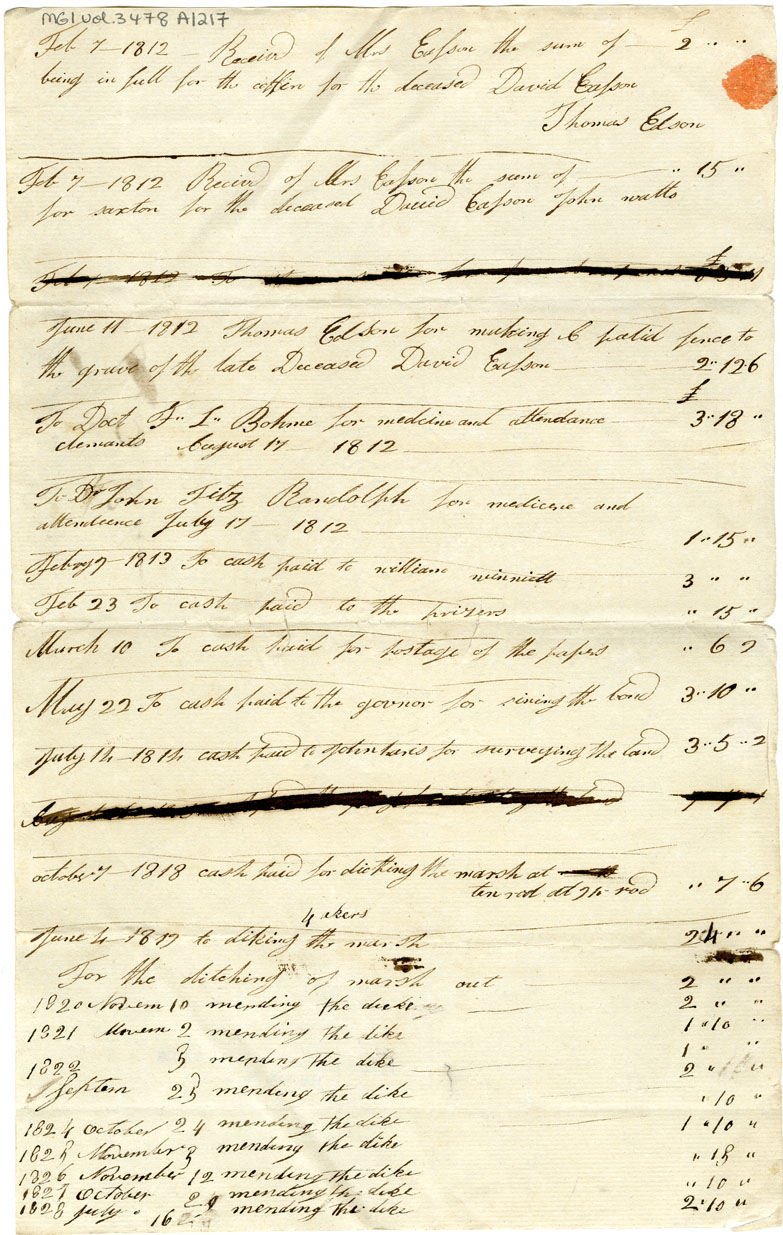 MG1 vol. 3478 A1217
£
Feb 7 - 1812 Receivd of Mrs Easson the sum of 2 " "
being in full for the coffin for the deceased David Easson
Thomas Edson
Feb 7 - 1812 Receivd of Mrs Easson the sum of " 15 "
for saxton for the deceased David Easson John watts
£
June 11 - 1812 Thomas Edson for making a palid fence to
the grave of the late Deceased David Easson 2 " 12 6
£
To Doct F " L " Bohme for medicine and attendance 3 " 18 "
clemants August 17 1812
To Dr John Fitz Randolph for medicene and
attendence July 17 - 1812
1 " 15 "
Febry 9 - 1813 To cash paid to william winniett 3 " "
Feb 23 To cash paid to the prizers " 15 "
March 10 To cash paid for postage of the papers " 6 9
May 22 To cash paid to the govnor for sining the bond 3 " 10 "
July 14 - 1814 cash paid to for surveying the land 3 " 5 " 2
october 7 1818 cash paid for dicking the marsh at
ten rod at 9d rod " 7 " 6
4 akers
June 4 - 1819 to diking the marsh 24 " "
For the ditching of marsh out 2 " "
1820 Novem 10 mending the dicke 2 " "
1821 Novem 2 mending the dike 1 " 10 "
1 " "
1822 5 mending the dike 2 "
Septem 25 mending the dike " 10 "
1824 october 24 mending the dike 1 " 10 "
1825 November 5 mending the dike " 15 "
1826 November 12 mending the dike " 10 "
1827 October 29 mending the dike
1828 july " 16 mending the dike 2 " 10 "